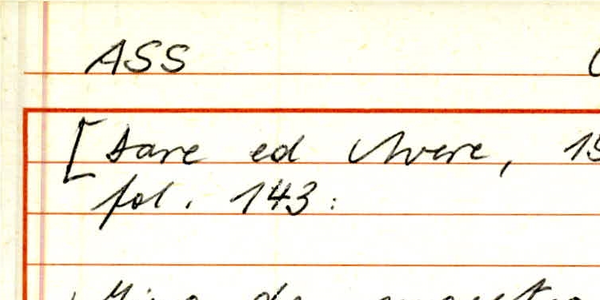 ASS
[Dare ed Avere, 15
fol. 143: